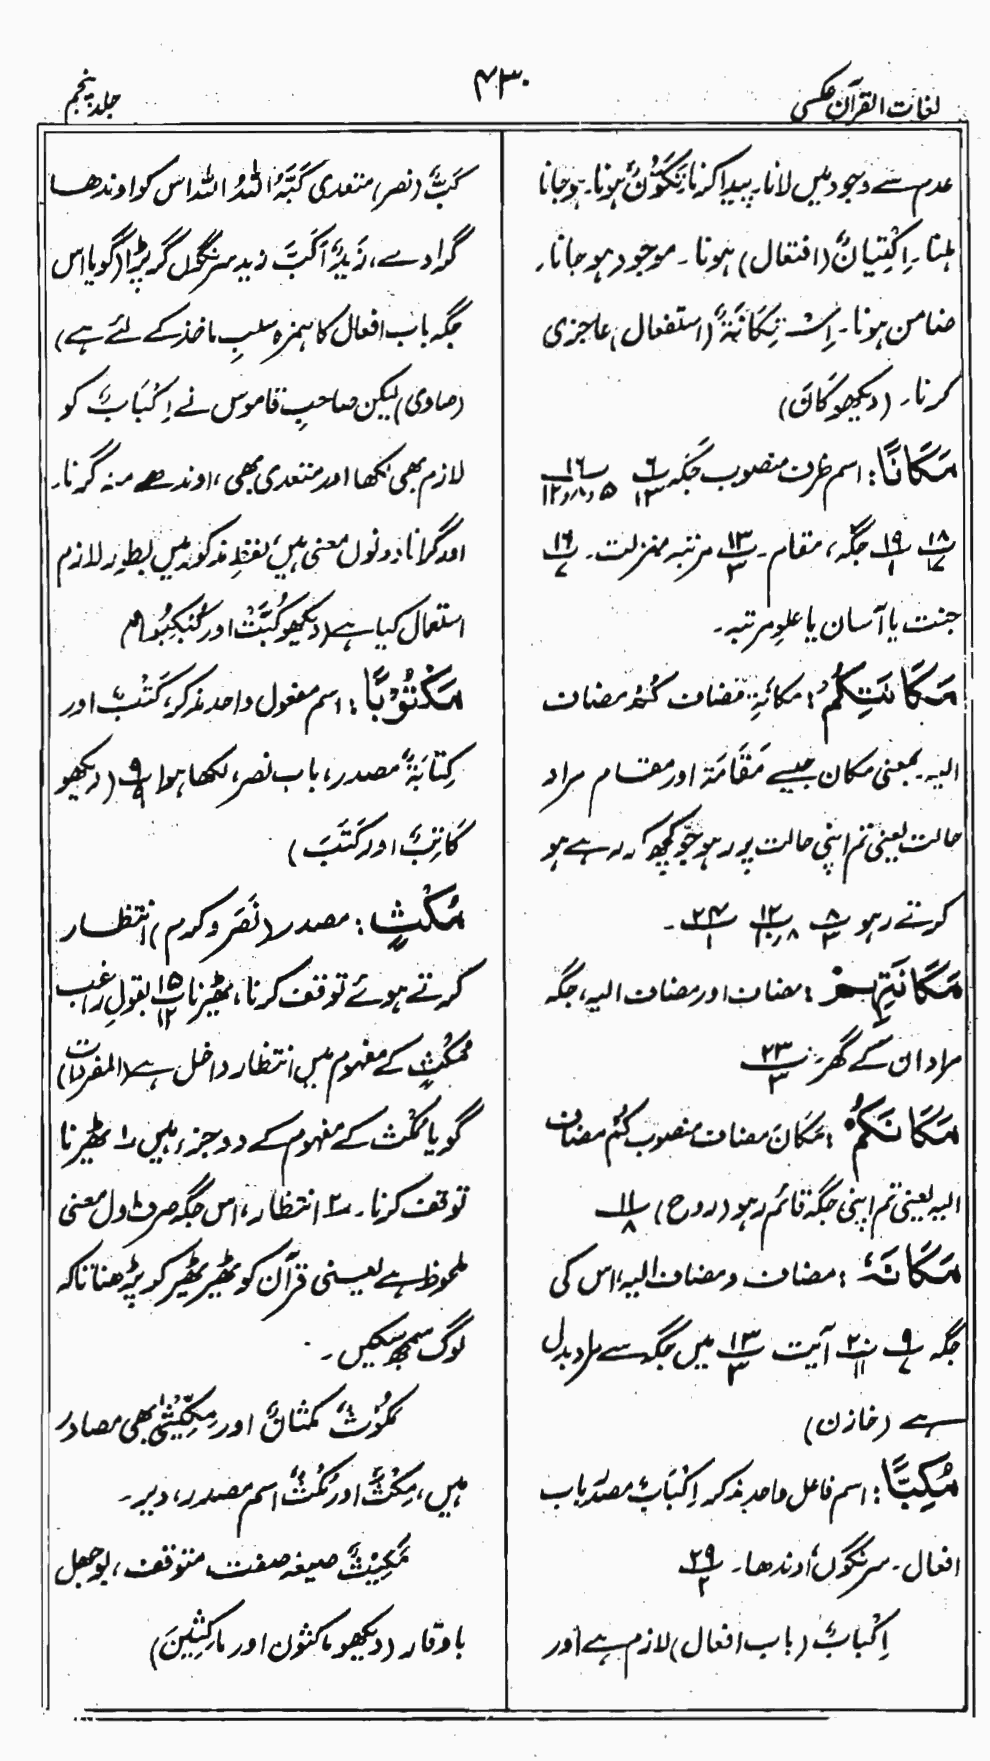 لغات القرآن عکسی
۴۳۰
جلد پنجم
عدم سے وجود میں لانا۔ پیدا کرنا تَکَوُّنٌ ہونا۔ ہو جانا
ہلنا۔ اِکْتِیَانٌ (افتعال) ہونا۔ موجود ہو جانا،
ضامن ہونا۔ اِسْتِکَانَۃٌ (استفعال) عاجزی
کرنا۔ (دیکھو کَانَ)
مَکَانًا: اسم ظرف منصوب جگہ ۶/۱۳ ۱۶/۵،۸،۱۲
۱۸/۱۷ ۱۹/۱ جگہ، مقام۔ ۱۳/۳ مرتبہ منزلت۔ ۱۶/۷
جنت یا آسمان یا علوِ مرتبہ۔
مَکَانَتِکُمْ: مکانَۃِ مضاف کُمْ مضاف
الیہ۔ بمعنی مکان جیسے مَقَامَۃ اور مقام مراد
حالت یعنی تم اپنی حالت پر رہو جو کچھ کر رہے ہو
کرتے رہو ۸/۳ ۱۲/۸،۱۰ ۲۴/۱ ۔
مَکَانَتِہِمْ: مضاف اور مضاف الیہ، جگہ
مراد ان کے گھر ۲۳/۳
مَکَانَکُمْ: مَکَانَ مضاف منصوب کُم مضاف
الیہ یعنی تم اپنی جگہ قائم رہو (روح) ۱۱/۸
مَکَانَہٗ: مضاف و مضاف الیہ، اس کی
جگہ ۹/۷ ۲۰/۱۱ آیت ۱۳/۳ میں جگہ سے مراد بدل
ہے (خازن)
مُکِبًّا: اسم فاعل واحد مذکر اِکْبَابٌ مصدر باب
افعال۔ سرنگوں اوندھا۔ ۲۹/۲
اِکْبَابٌ (باب افعال) لازم ہے اور
کَبٌّ (نصر) متعدی کَبَّہُ اللہُ اللہ اس کو اوندھا
گرا دے، زَیْدٌ اَکَبَّ زید سرنگوں گر پڑا (گویا اس
جگہ باب افعال کا ہمزہ سلبِ ماخذ کے لئے ہے)
(صاوی) لیکن صاحبِ قاموس نے اِکْبَابٌ کو
لازم بھی لکھا اور متعدی بھی، اوندھے منہ گرنا۔
اور گرانا دونوں معنی ہیں، لفظِ مذکور میں بطور لازم
استعمال کیا ہے (دیکھو کُبَّتْ اور کُبْکِبُوا)
مَکْتُوْبًا: اسم مفعول واحد مذکر، کَتْبٌ اور
کِتَابَۃٌ مصدر، باب نصر، لکھا ہوا ۹/۹ (دیکھو
کَاتِبٌ اور کَتَبَ)
مُکْثٍ: مصدر (نَصَرَ و کرم) انتظار
کرتے ہوئے توقف کرنا، ٹھیرنا ۱۵/۱۲ بقولِ راغب
مُکْثٍ کے مفہوم میں انتظار داخل ہے (المفردات)
گویا مُکْث کے مفہوم کے دو جزء ہیں ۱ ٹھیرنا
توقف کرنا۔ ۲ انتظار، اس جگہ صرف اول معنی
ملحوظ ہے یعنی قرآن کو ٹھیر ٹھیر کر پڑھنا تاکہ
لوگ سمجھ سکیں۔
مُکُوْثٌ مُکْثَانٌ اور مِکِّیْثٰی بھی مصادر
ہیں، مِکْثٌ اور مُکْثٌ اسم مصدر، دیر۔
مَکِیْثٌ صیغہ صفت متوقف، بوجھل
باوقار (دیکھو ماکثون اور مَاکِثِیْنَ)